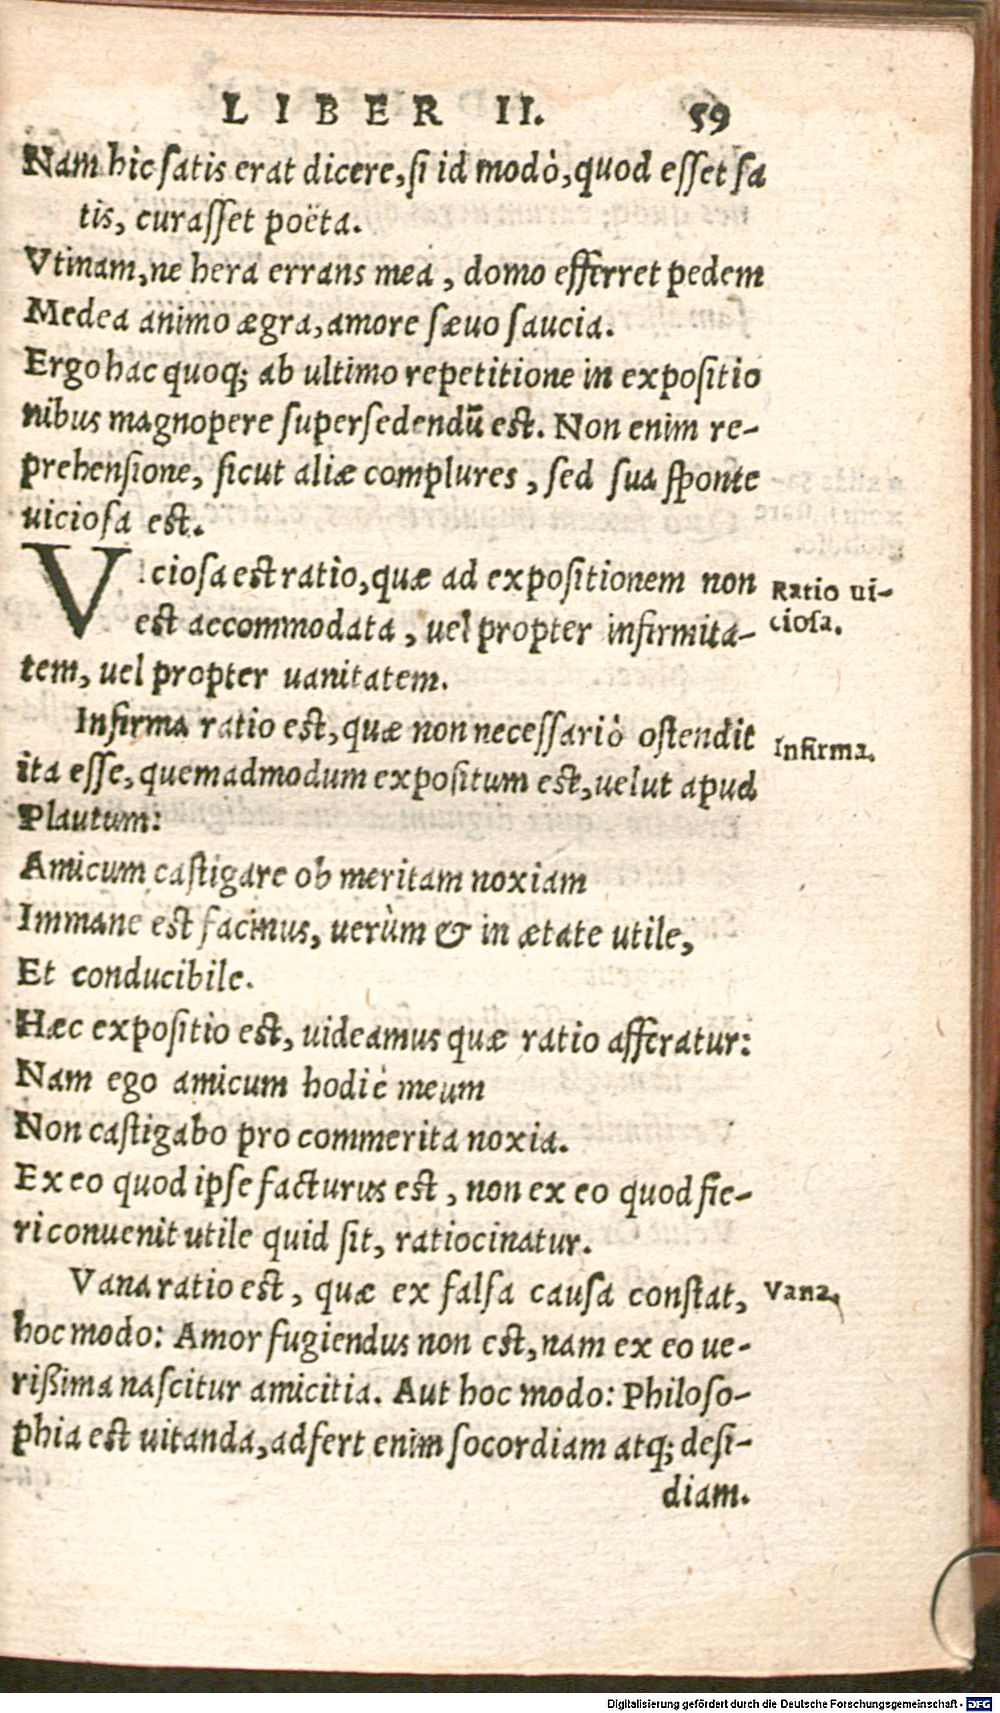 LIBER II. 59
Nam hic satis erat dicere, si id modò, quod esset sa
tis, curasset poëta.
Vtinam, ne hera errans mea, domo efferret pedem
Medea animo ægra, amore sæuo saucia.
Ergo hac quoq; ab ultimo repetitione in expositio
nibus magnopere supersedendū est. Non enim re-
prehensione, sicut aliæ complures, sed sua sponte
uiciosa est.
Viciosa est ratio, quæ ad expositionem non
Ratio ui-
est accommodata, uel propter infirmita-
ciosa.
tem, uel propter uanitatem.
Infirma ratio est, quæ non necessariò ostendit
Infirma.
ita esse, quemadmodum expositum est, uelut apud
Plautum:
Amicum castigare ob meritam noxiam
Immane est facinus, uerùm & in ætate utile,
Et conducibile.
Hæc expositio est, uideamus quæ ratio afferatur:
Nam ego amicum hodiè meum
Non castigabo pro commerita noxia.
Ex eo quod ipse facturus est, non ex eo quod fie-
ri conuenit utile quid sit, ratiocinatur.
Vana ratio est, quæ ex falsa causa constat,
Vana.
hoc modo: Amor fugiendus non est, nam ex eo ue-
rißima nascitur amicitia. Aut hoc modo: Philoso-
phia est uitanda, adfert enim socordiam atq; desi-
diam.
Digitalisierung gefördert durch die Deutsche Forschungsgemeinschaft - DFG